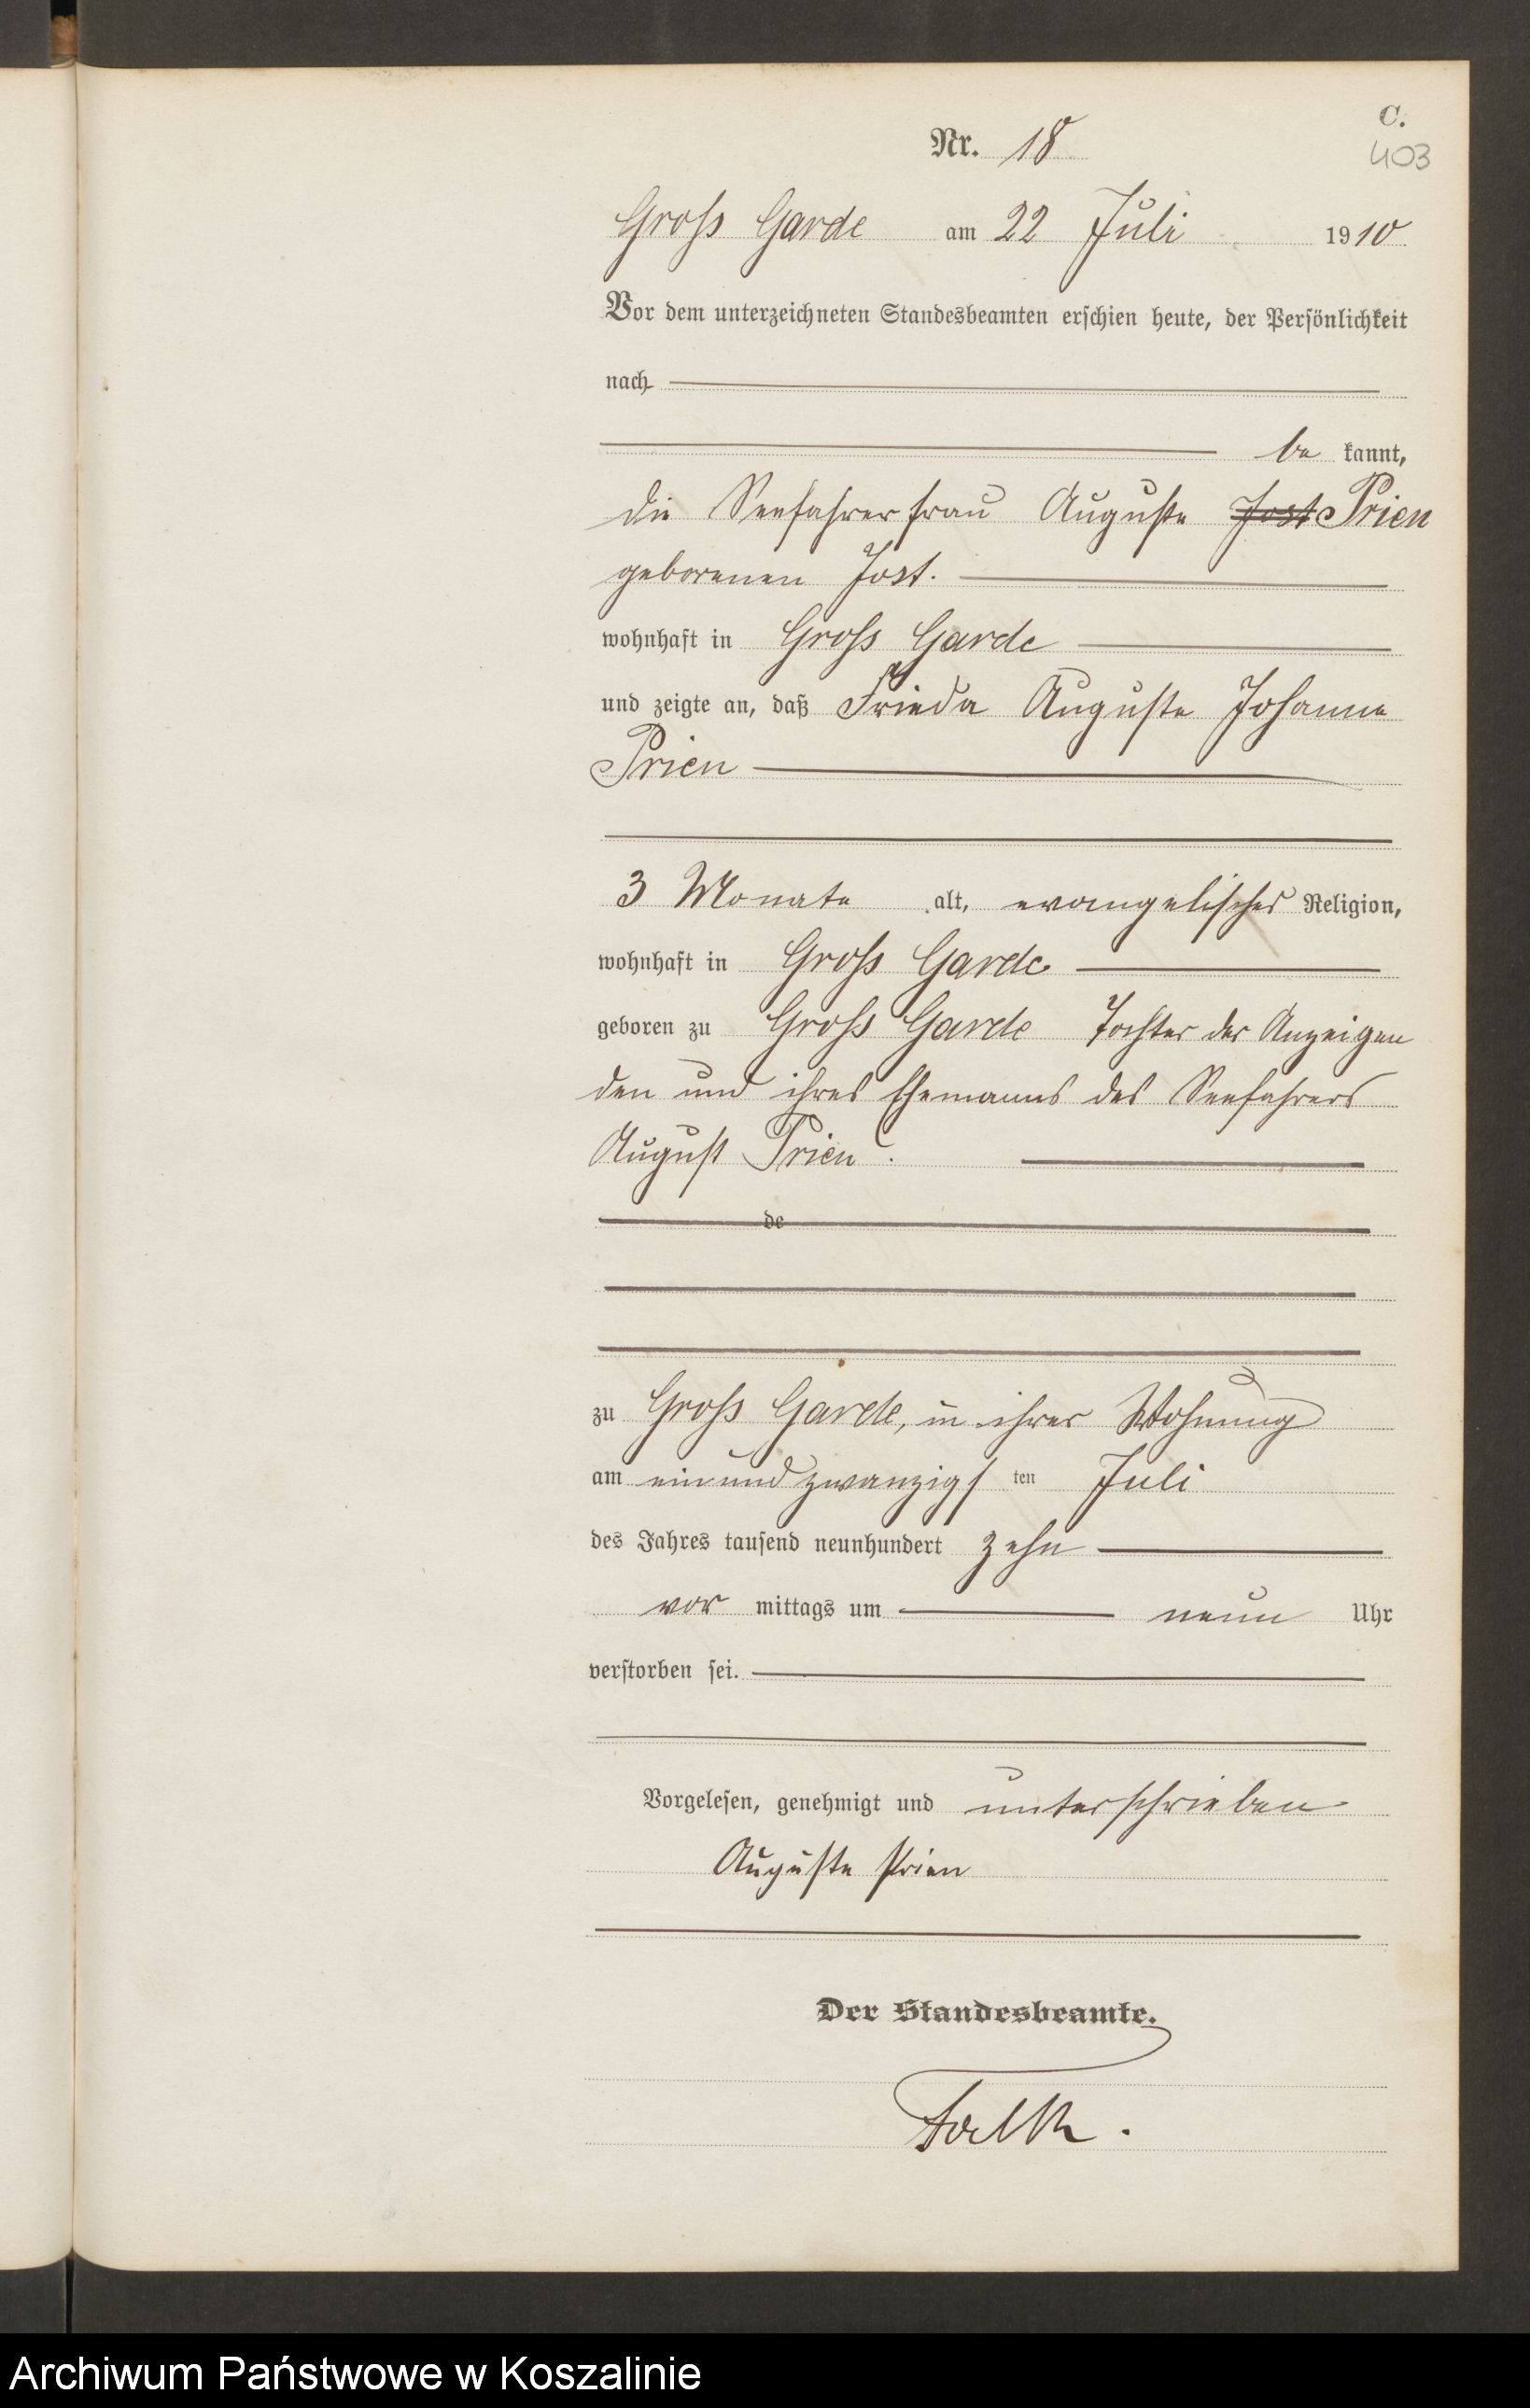 C.
Nr. 18
403
Gross Garde am 22 Juli 1910
Vor dem unterzeichneten Standesbeamten erschien heute, der Persönlichkeit
nach
be kannt,
die Seefahrerfrau Auguste Jost Prien
geborenen Jost.
wohnhaft in Gross Garde
und zeigte an, daß Frieda Auguste Johanne
Prien
3 Monate alt, evangelischer Religion,
wohnhaft in Gross Garde
geboren zu Gross Garde Tochter der Anzeigen
den und ihres Ehemanns des Seefahrers
August Prien.
de
zu Gross Garde, in ihrer Wohnung
am einundzwanzigs ten Juli
des Jahres tausend neunhundert zehn
vor mittags um neun Uhr
verstorben sei.
Vorgelesen, genehmigt und unterschrieben
Auguste Prien
Der Standesbeamte.
Falk.
Archiwum Państwowe w Koszalinie